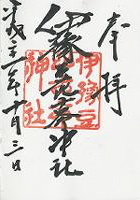 奉拝
伊豫豆比古命神社
伊豫豆
比古命
神社
平成年十月三日